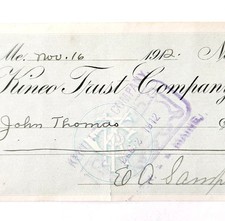 Me. Nov. 16 1912 N
Kineo Trust Company
John Thomas
1912
E A Samp